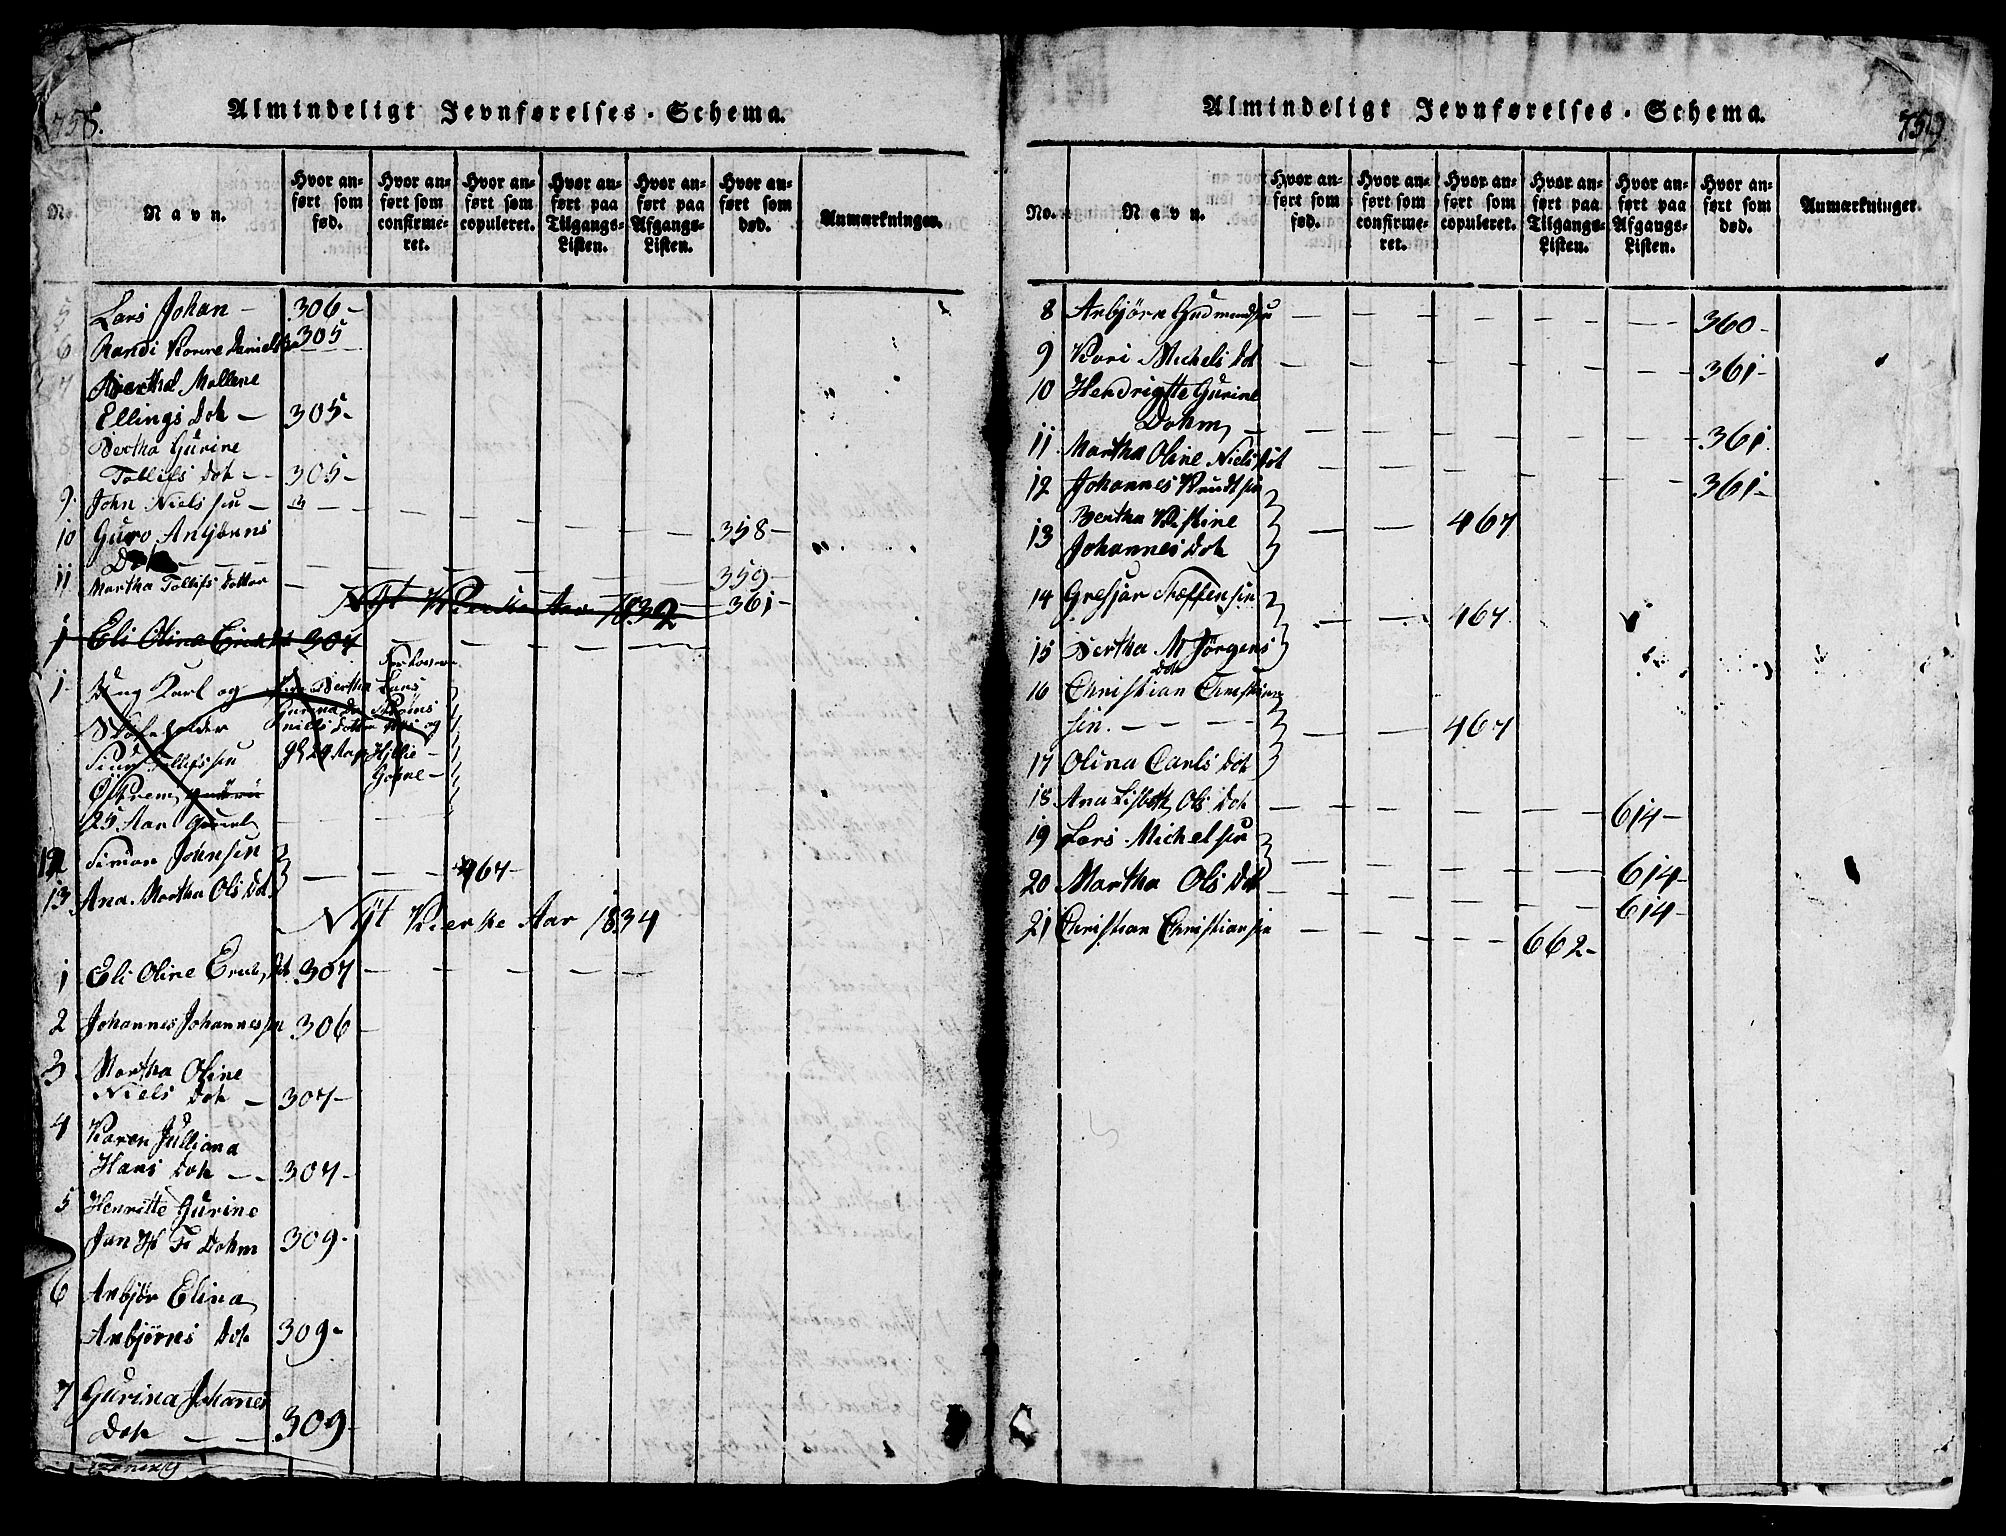 758.
Almindeligt Jevnførelses-Schema.
No.
Navn.
Hvor anført som fød.
Hvor anført som confirmeret.
Hvor anført som copuleret.
Hvor anført paa Tilgangs-Listen.
Hvor anført paa Afgangs-Listen.
Hvor anført som død.
Anmærkninger.
5 Lars Johan - 306-
6 Randi Korine Daniels 305
7 Berthal Mallene
Ellings Dot - 305-
8 Bertha Gurine
Tollifs Dot - - 305-
9. John Niels sen - - - - 358-
10 Guro Anbjørns
Dot - - - 359-
11 Martha Tollifs Dotter - - - 361-
Nyt Kierke Aar 1832
1 Eli Oline Erichs Dt 307 - - - -
1 Ung Karl og
25 Aar
12 Simon Johnsen
- - 467-
13 Ana Martha Ols Dot
Nyt Kierke Aar 1834
1 Eli Oline Erichs Dot 307 - - - -
2 Johannes Johannessen 306-
3 Martha Oline
Niels Dot - 307-
4 Karen Juliana
Hans Dot - - 307-
5 Henritte Gurine
Jan H F Dohm 309-
6 Anbjør Elina
Anbjørns Dot 309-
7 Gurina Johannes
Dot - - 309-
759
Almindeligt Jevnførelses-Schema.
No.
Navn.
Hvor anført som fød.
Hvor anført som confirmeret.
Hvor anført som copuleret.
Hvor anført paa Tilgangs-Listen.
Hvor anført paa Afgangs-Listen.
Hvor anført som død.
Anmærkninger.
8 Anbjørn Gudmundsen - - - - - 360-
9 Kari Michels Dot - - - - - 361-
10 Hendrigtte Gurine
Dohm - - - - - 361
11 Martha Oline Niels Dot - - - - - 361-
12 Johannes Knudtsen
- - 467
13 Bertha Kistine
Johannes Dot
14 Gresjar Stæffensen
- - 467
15 Bertha M Jørgens
Dot
16 Christian Christian
sen. - - - - 467
17 Olina Carls Dot
18 Ana Lisbeth Ols Dot - - - - 614-
19 Lars Michelsen
- - - - 614-
20 Martha Ols Dot - - - - 614-
21 Christian Christiansen - - - 662-